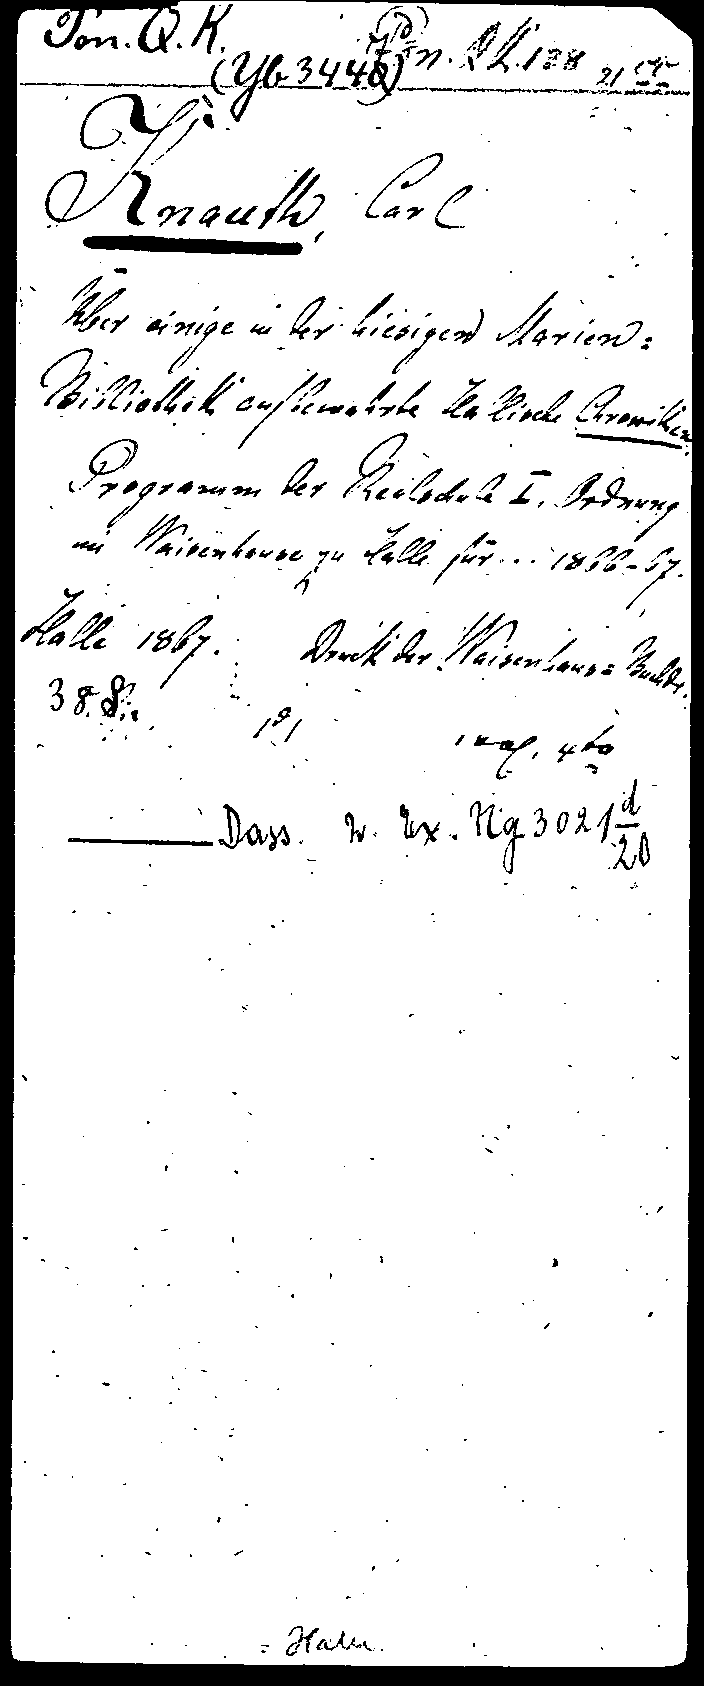 Pon. Q. K.
(Yb 3440) Pon. QK. 188
Knauth, Carl
Über einige in der hiesigen Marien=
Bibliothek aufbewahrte Hallische Chroniken.
Programm der Realschule I. Ordnung
im Waisenhause zu Halle für... 1866-67.
Halle 1867. Druck der Waisenhaus= Buchdr.
38. S.
4to
Dass. 2. Ex. Ng 3021 d/20
Halle